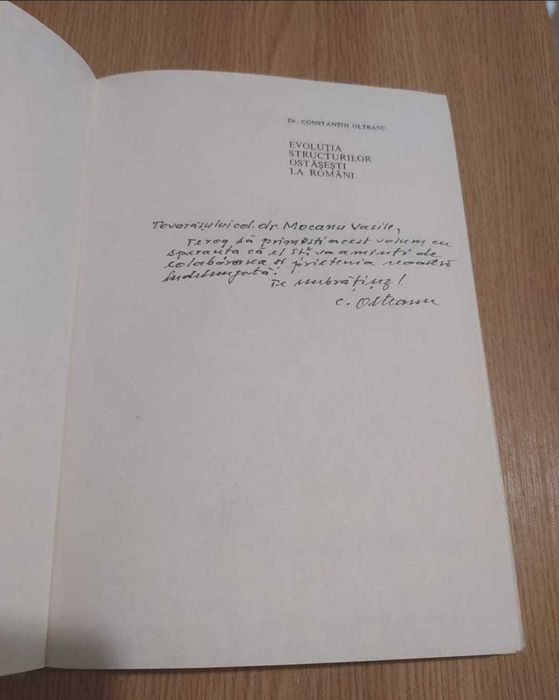 Dr. CONSTANTIN OLTEANU
EVOLUȚIA
STRUCTURILOR
OSTĂȘEȘTI
LA ROMÂNI
Tovarășului col. dr. Mocanu Vasile,
Te rog să primești acest volum cu
speranța că el îți va aminti de
colaborarea și prietenia noastră
îndelungată!
Te îmbrățișez!
C. Olteanu